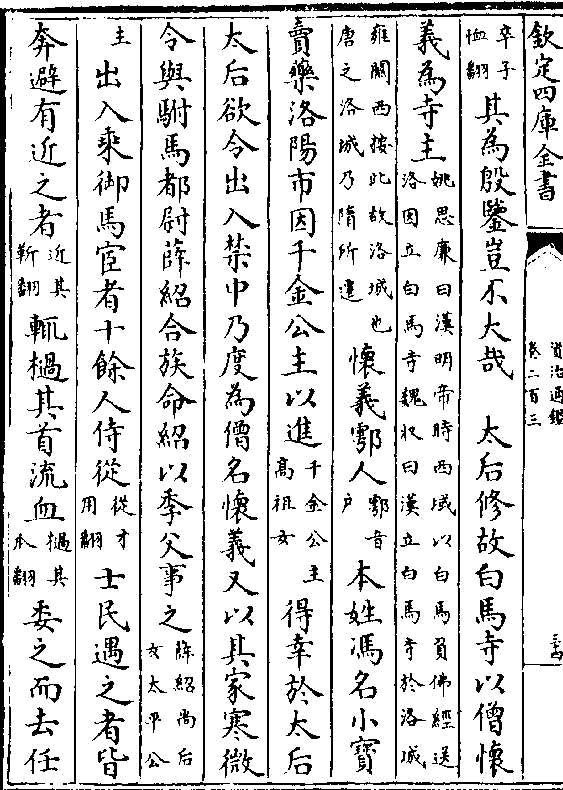 欽定四庫全書
資治通鑑
卷二百三
卒子
恤翻
其為殷鑒豈不大哉　太后修故白馬寺以僧懷
義為寺主
姚思廉曰漢明帝時西域以白馬負佛經送
洛因立白馬寺魏收曰漢立白馬寺於洛城
雍關西按此故洛城也
唐之洛城乃隋所遷
懷義鄠人
鄠音
户
本姓馮名小寶
賣藥洛陽市因千金公主以進
千金公主
高祖女
得幸於太后
太后欲令出入禁中乃度為僧名懷義又以其家寒微
令與駙馬都尉薛紹合族命紹以季父事之
薛紹尚后
女太平公
主
出入乘御馬宦者十餘人侍從
從才
用翻
士民遇之者皆
奔避有近之者
近其
靳翻
輒檛其首流血
檛其
委之而去任